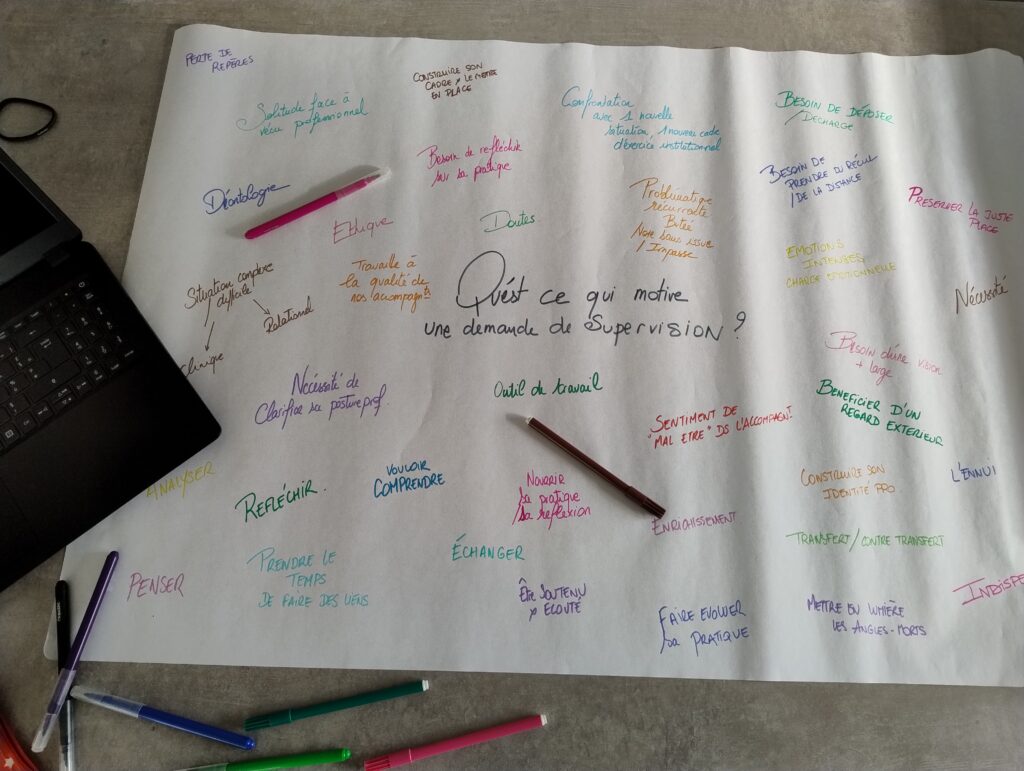 PERTE DE
REPÈRES
CONSTRUIRE SON
CADRE & LE METTRE
EN PLACE
Solitude face à
vécu professionnel
Confrontation
avec 1 nouvelle
situation, 1 nouveau cadre
d'exercice institutionnel
BESOIN DE DÉPOSER
/DECHARGE
Besoin de réfléchir
sur sa pratique
BESOIN DE
PRENDRE DU RECUL
/DE LA DISTANCE
Déontologie
Ethique
Doutes
Problématique
récurrente
sans issue
/Impasse
PRESERVER LA JUSTE
PLACE
EMOTIONS
INTENSES
CHARGE EMOTIONNELLE
Situation complexe
difficile
Relationnel
Clinique
Travaille à
la qualité de
nos accompagnts
Qu'est ce qui motive
une demande de Supervision?
Nécessité
BESOIN d'une VISION
+ large
Nécessité de
Clarifier sa posture prof.
Outil de travail
BENEFICIER D'UN
REGARD EXTERIEUR
SENTIMENT DE
"MAL ETRE" DS L'ACCOMPAGNT
ANALYSER
REFLÉCHIR.
VOULOIR
COMPRENDRE
Nourrir
sa pratique
/sa reflexion
CONSTRUIRE SON
IDENTITÉ PRO
L'ENNUI
ENRICHISSEMENT
TRANSFERT/CONTRE TRANSFERT
PENSER
PRENDRE LE
TEMPS
DE FAIRE DES LIENS
ÉCHANGER
ÊTRE SOUTENU
& ECOUTÉ
FAIRE EVOLUER
sa PRATIQUE
METTRE EN LUMIÈRE
LES ANGLES-MORTS
INDISPE